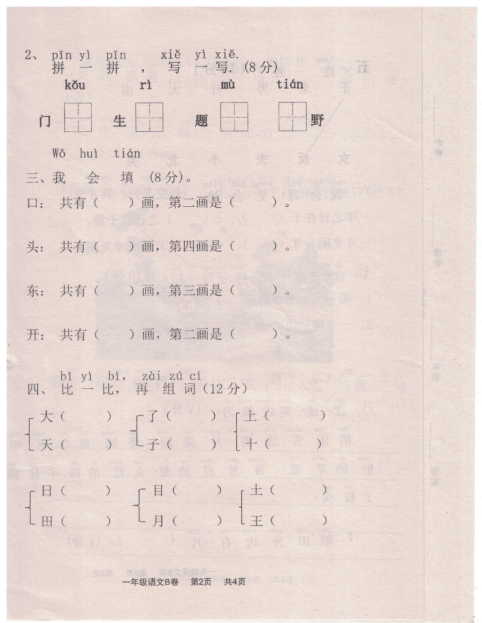 pīn yì pīn xiě yì xiě.
2、拼 一 拼 ，写 一 写.(8分)
kǒu rì mù tián
门 生 题 野
Wǒ huì tián
三、我 会 填 (8分)。
口：共有（ ）画，第二画是（ ）。
头：共有（ ）画，第四画是（ ）。
东：共有（ ）画，第三画是（ ）。
开：共有（ ）画，第二画是（ ）。
bǐ yì bǐ，zài zǔ cí
四、比 一 比，再 组 词(12分)
大（ ） 了（ ） 上（ ）
天（ ） 子（ ） 十（ ）
日（ ） 目（ ） 土（ ）
田（ ） 月（ ） 王（ ）
一年级语文B卷 第2页 共4页